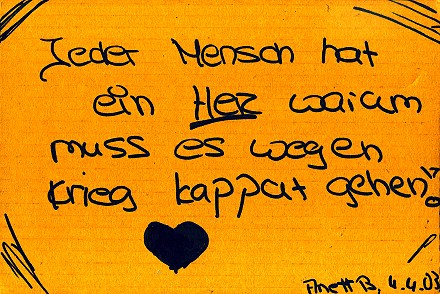 Jeder Mensch hat
ein Herz warum
muss es wegen
Krieg kappat gehen!?
Anett B, 4.4.03